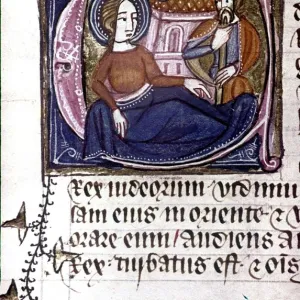 Rex iudeorum vidimus
sam eius in oriente &
orare eum / Audiens a
Rex turbatus est & ois